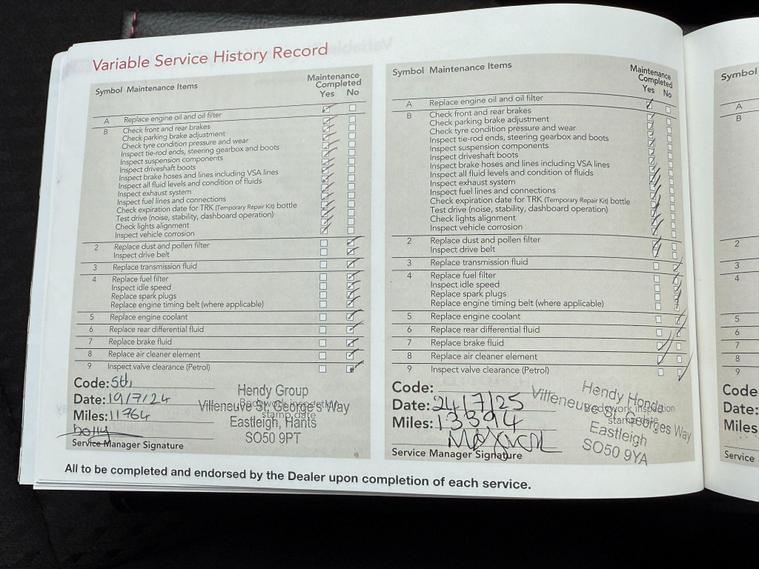 Variable Service History Record
Symbol Maintenance Items
Maintenance
Completed
Yes No
A Replace engine oil and oil filter
B Check front and rear brakes
Check parking brake adjustment
Check tyre condition pressure and wear
Inspect tie-rod ends, steering gearbox and boots
Inspect suspension components
Inspect driveshaft boots
Inspect brake hoses and lines including VSA lines
Inspect all fluid levels and condition of fluids
Inspect exhaust system
Inspect fuel lines and connections
Check expiration date for TRK (Temporary Repair Kit) bottle
Test drive (noise, stability, dashboard operation)
Check lights alignment
Inspect vehicle corrosion
2 Replace dust and pollen filter
Inspect drive belt
3 Replace transmission fluid
4 Replace fuel filter
Inspect idle speed
Replace spark plugs
Replace engine timing belt (where applicable)
5 Replace engine coolant
6 Replace rear differential fluid
7 Replace brake fluid
8 Replace air cleaner element
9 Inspect valve clearance (Petrol)
Code:
Date: 19/7/24
Miles: 11764
Service Manager Signature
Hendy Group
Villeneuve St, George's Way
Eastleigh, Hants
SO50 9PT
Symbol Maintenance Items
Maintenance
Completed
Yes No
A Replace engine oil and oil filter
B Check front and rear brakes
Check parking brake adjustment
Check tyre condition pressure and wear
Inspect tie-rod ends, steering gearbox and boots
Inspect suspension components
Inspect driveshaft boots
Inspect brake hoses and lines including VSA lines
Inspect all fluid levels and condition of fluids
Inspect exhaust system
Inspect fuel lines and connections
Check expiration date for TRK (Temporary Repair Kit) bottle
Test drive (noise, stability, dashboard operation)
Check lights alignment
Inspect vehicle corrosion
2 Replace dust and pollen filter
Inspect drive belt
3 Replace transmission fluid
4 Replace fuel filter
Inspect idle speed
Replace spark plugs
Replace engine timing belt (where applicable)
5 Replace engine coolant
6 Replace rear differential fluid
7 Replace brake fluid
8 Replace air cleaner element
9 Inspect valve clearance (Petrol)
Code:
Date: 24/7/25
Miles: 13394
Service Manager Signature
Hendy Honda
Villeneuve St, Georges Way
Eastleigh
SO50 9YA
All to be completed and endorsed by the Dealer upon completion of each service.
Symbol
A
B
2
3
4
5
6
7
8
9
Code
Date:
Miles
Service